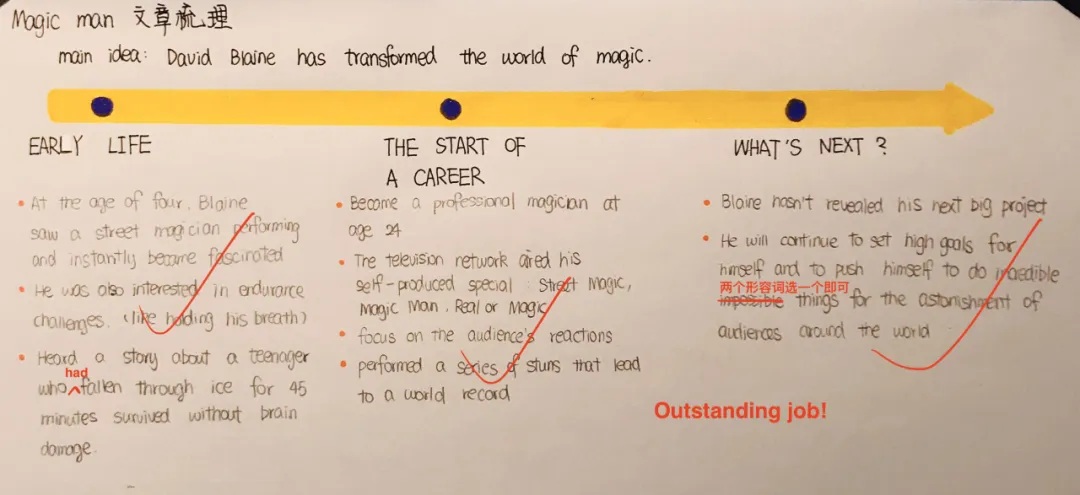 Magic man 文章梳理
main idea: David Blaine has transformed the world of magic.
EARLY LIFE
At the age of four, Blaine
saw a street magician performing
and instantly became fascinated
He was also interested in endurance
challenges. (like holding his breath)
Heard a story about a teenager
had
who fallen through ice for 45
minutes survived without brain
damage.
THE START OF
A CAREER
Become a professional magician at
age 24
The television network aired his
self-produced special: Street Magic,
Magic Man, Real or Magic
focus on the audience's reactions
performed a series of stuns that lead
to a world record
WHAT'S NEXT?
Blaine hasn't revealed his next big project
He will continue to set high goals for
himself and to push himself to do incredible
两个形容词选一个即可
impossible things for the astonishment of
audiences around the world
Outstanding job!